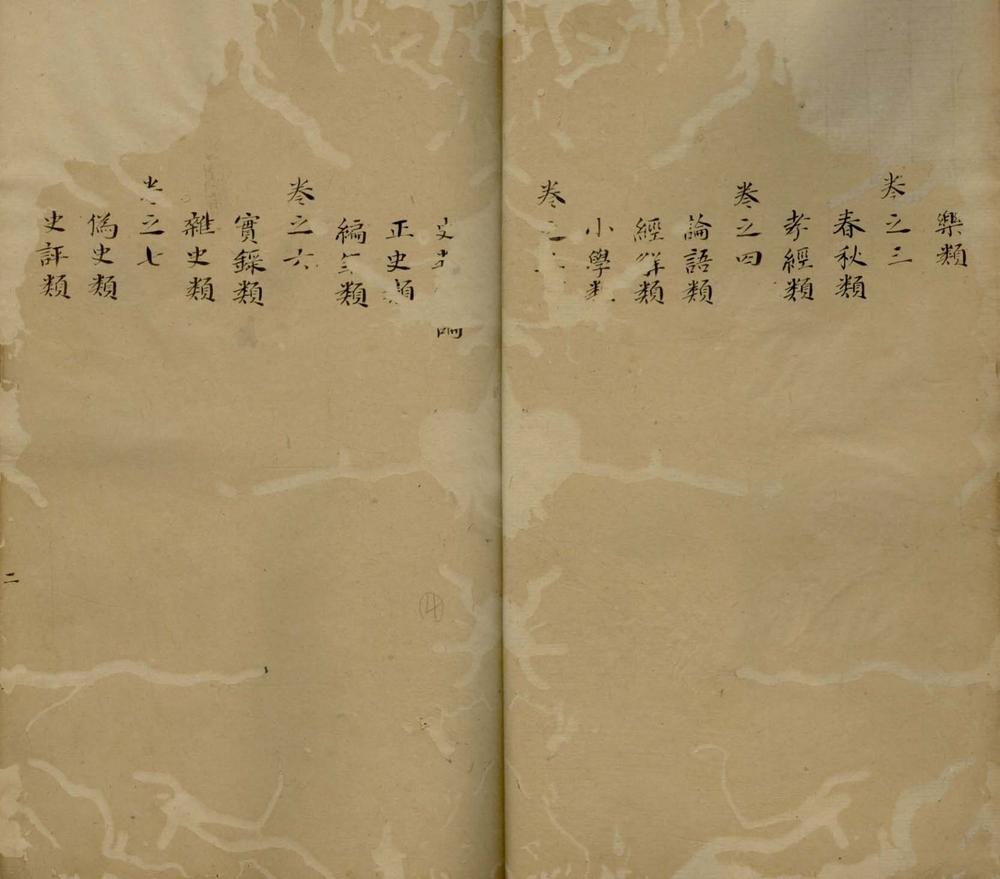 樂類
卷之三
春秋類
孝經類
卷之四
論語類
經解類
小學類
卷之
史
正史類
編年類
卷之六
實錄類
雜史類
卷之七
偽史類
史評類
二